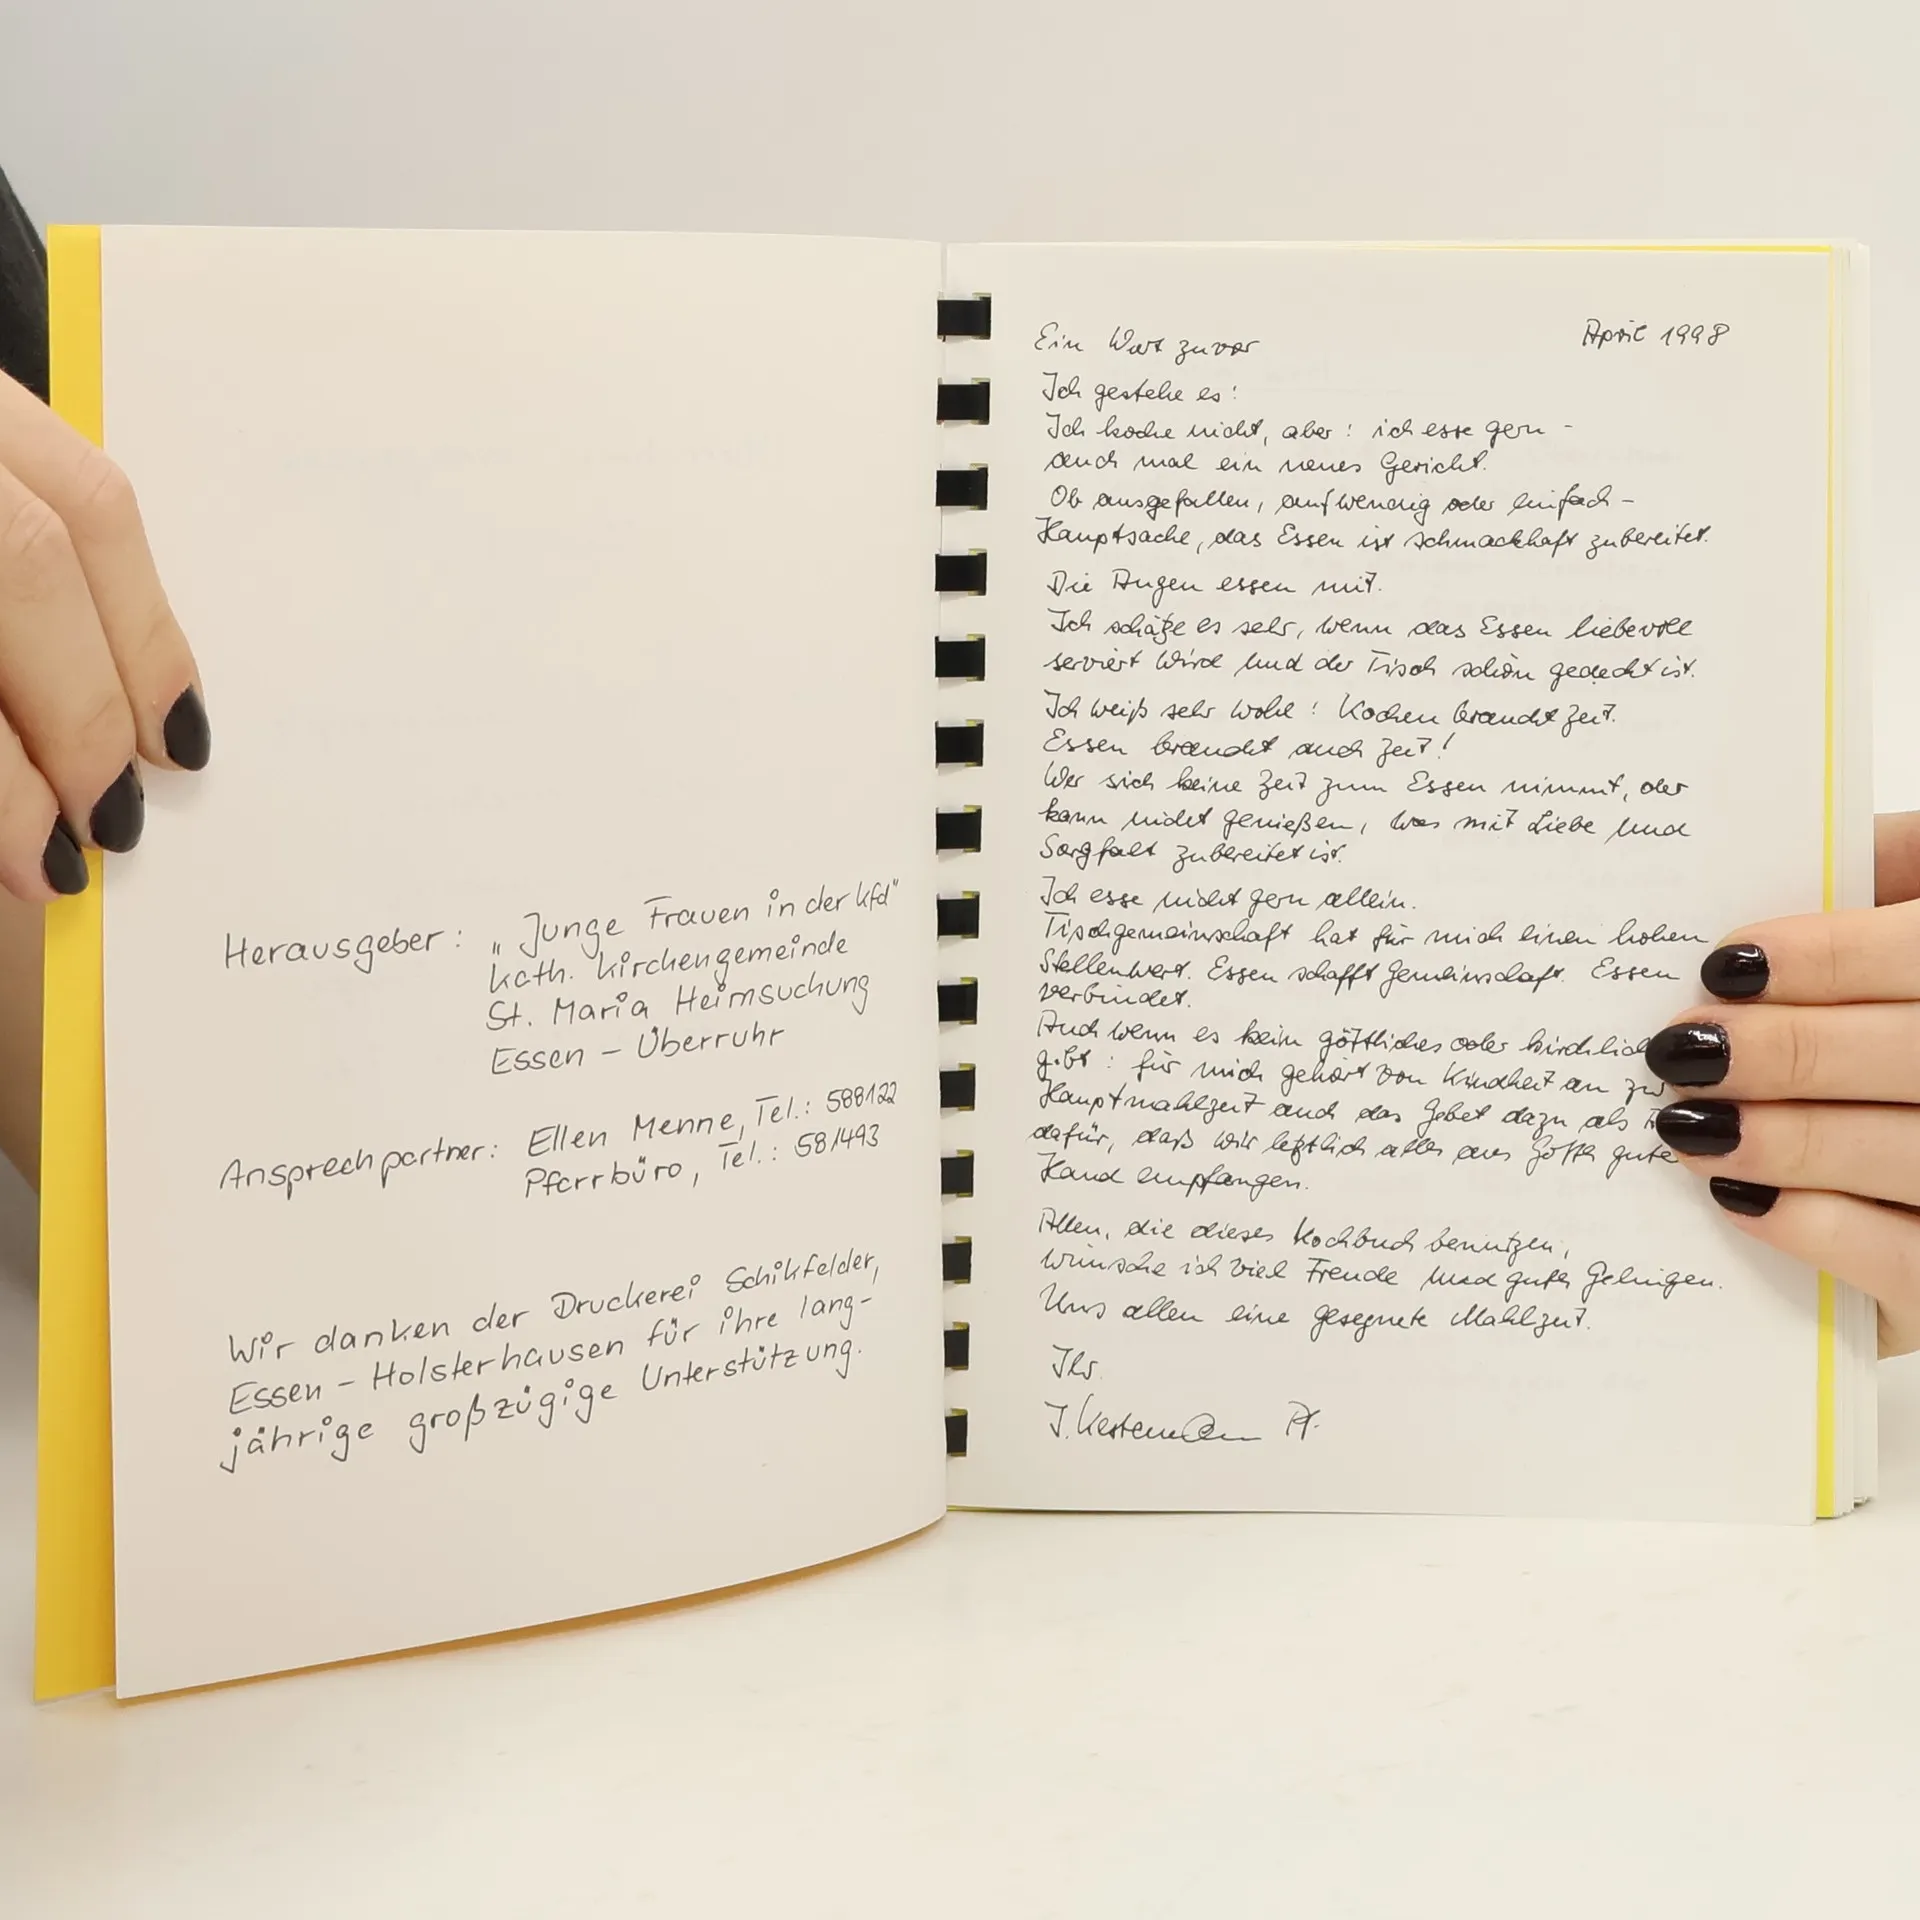 Herausgeber: „Junge Frauen in der kfd"
kath. Kirchengemeinde
St. Maria Heimsuchung
Essen – Überruhr
Ansprechpartner: Ellen Menne, Tel.: 588122
Pfarrbüro, Tel.: 581493
Wir danken der Druckerei Schikfelder,
Essen – Holsterhausen für ihre lang-
jährige großzügige Unterstützung.
Ein Wort zuvor
April 1998
Ich gestehe es:
Ich koche nicht, aber: ich esse gern –
auch mal ein neues Gericht.
Ob ausgefallen, aufwendig oder einfach –
Hauptsache, das Essen ist schmackhaft zubereitet.
Die Augen essen mit.
Ich schätze es sehr, wenn das Essen liebevoll
serviert wird und der Tisch schön gedeckt ist.
Ich weiß sehr wohl: Kochen braucht Zeit.
Essen braucht auch Zeit!
Wer sich keine Zeit zum Essen nimmt, der
kann nicht genießen, was mit Liebe und
Sorgfalt zubereitet ist.
Ich esse nicht gern allein.
Tischgemeinschaft hat für mich einen hohen
Stellenwert. Essen schafft Gemeinschaft. Essen
verbindet.
Auch wenn es kein göttliches oder
gibt: für mich gehört von Kindheit an
Hauptmahlzeit auch das Gebet dazu als
dafür, daß wir letztlich alles aus Gottes gute
Hand empfangen.
Allen, die dieses Kochbuch benutzen,
wünsche ich viel Freude und gutes Gelingen.
Uns allen eine gesegnete Mahlzeit.
Ihr
J. Pf.